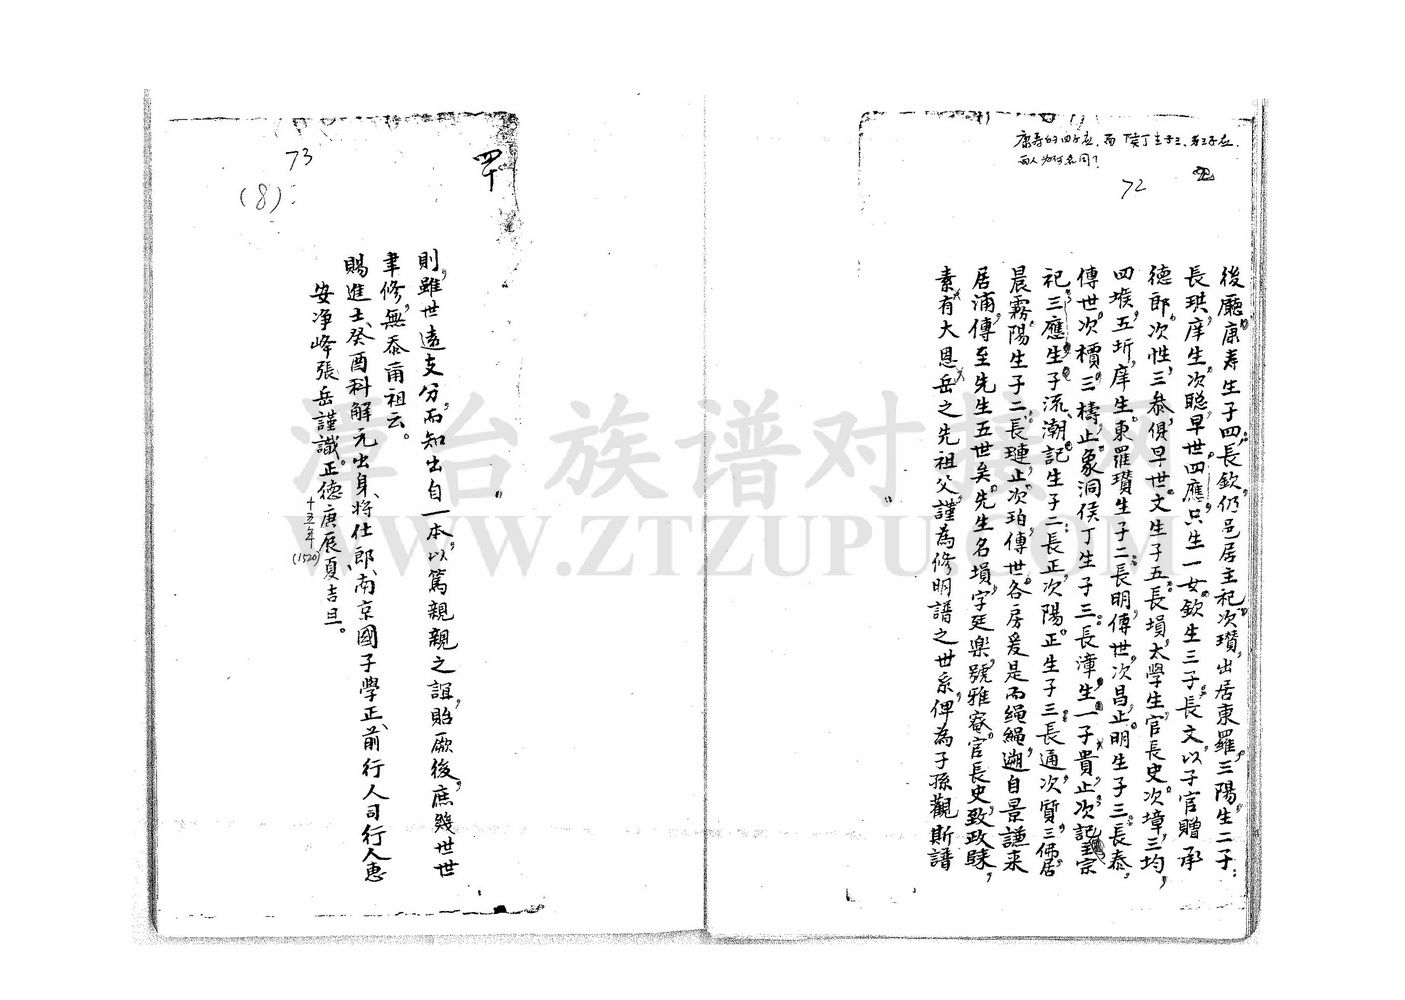 康寿的四子应，而侯丁生子三，第三子应，
两人为何名同？
72
後廳康寿生子四，長欽仍邑居主祀次瓚，出居東羅，三陽生二子：
長珙庠生，次聡早世四應，只生一女欽生三子，長文，以子官贈承
德郎，次性，三泰，俱早世文生子五，長塤，太學生，官長史。次埠，三均，
四堠，五圻，庠生。東羅瓚生子二：長明，傳世，次昌，止。明生子三：長泰，
傳世，次櫝，三檮，止象洞侯丁生子三：長漳，生一子貴，止次記主宗
祀，三應，生子流潮。記生子二：長正，次陽。正生子三：長通，次質，三佛居
晨霧，陽生子二：長璉，止次珀，傳世。各房爰是而繩繩，遡自景謙来
居浦，傳至先生五世矣。先生名塤，字廷樂，號雅菴，官長史，致政歸，
素有大恩岳之先祖父，謹為修明譜之世系，俾為子孫觀斯譜
四十
73
(8)
則，雖世遠支分，而知出自一本，以篤親親之誼，貽厥後，庶幾世世
聿修，無忝甭祖云。
賜進士、癸酉科解元出身、将仕郎、南京國子學正、前行人司行人惠
安净峰張岳謹識。正德庚辰夏吉旦。
十五年
(1520)
澤台族谱对接网
WWW.ZTZUPU.COM